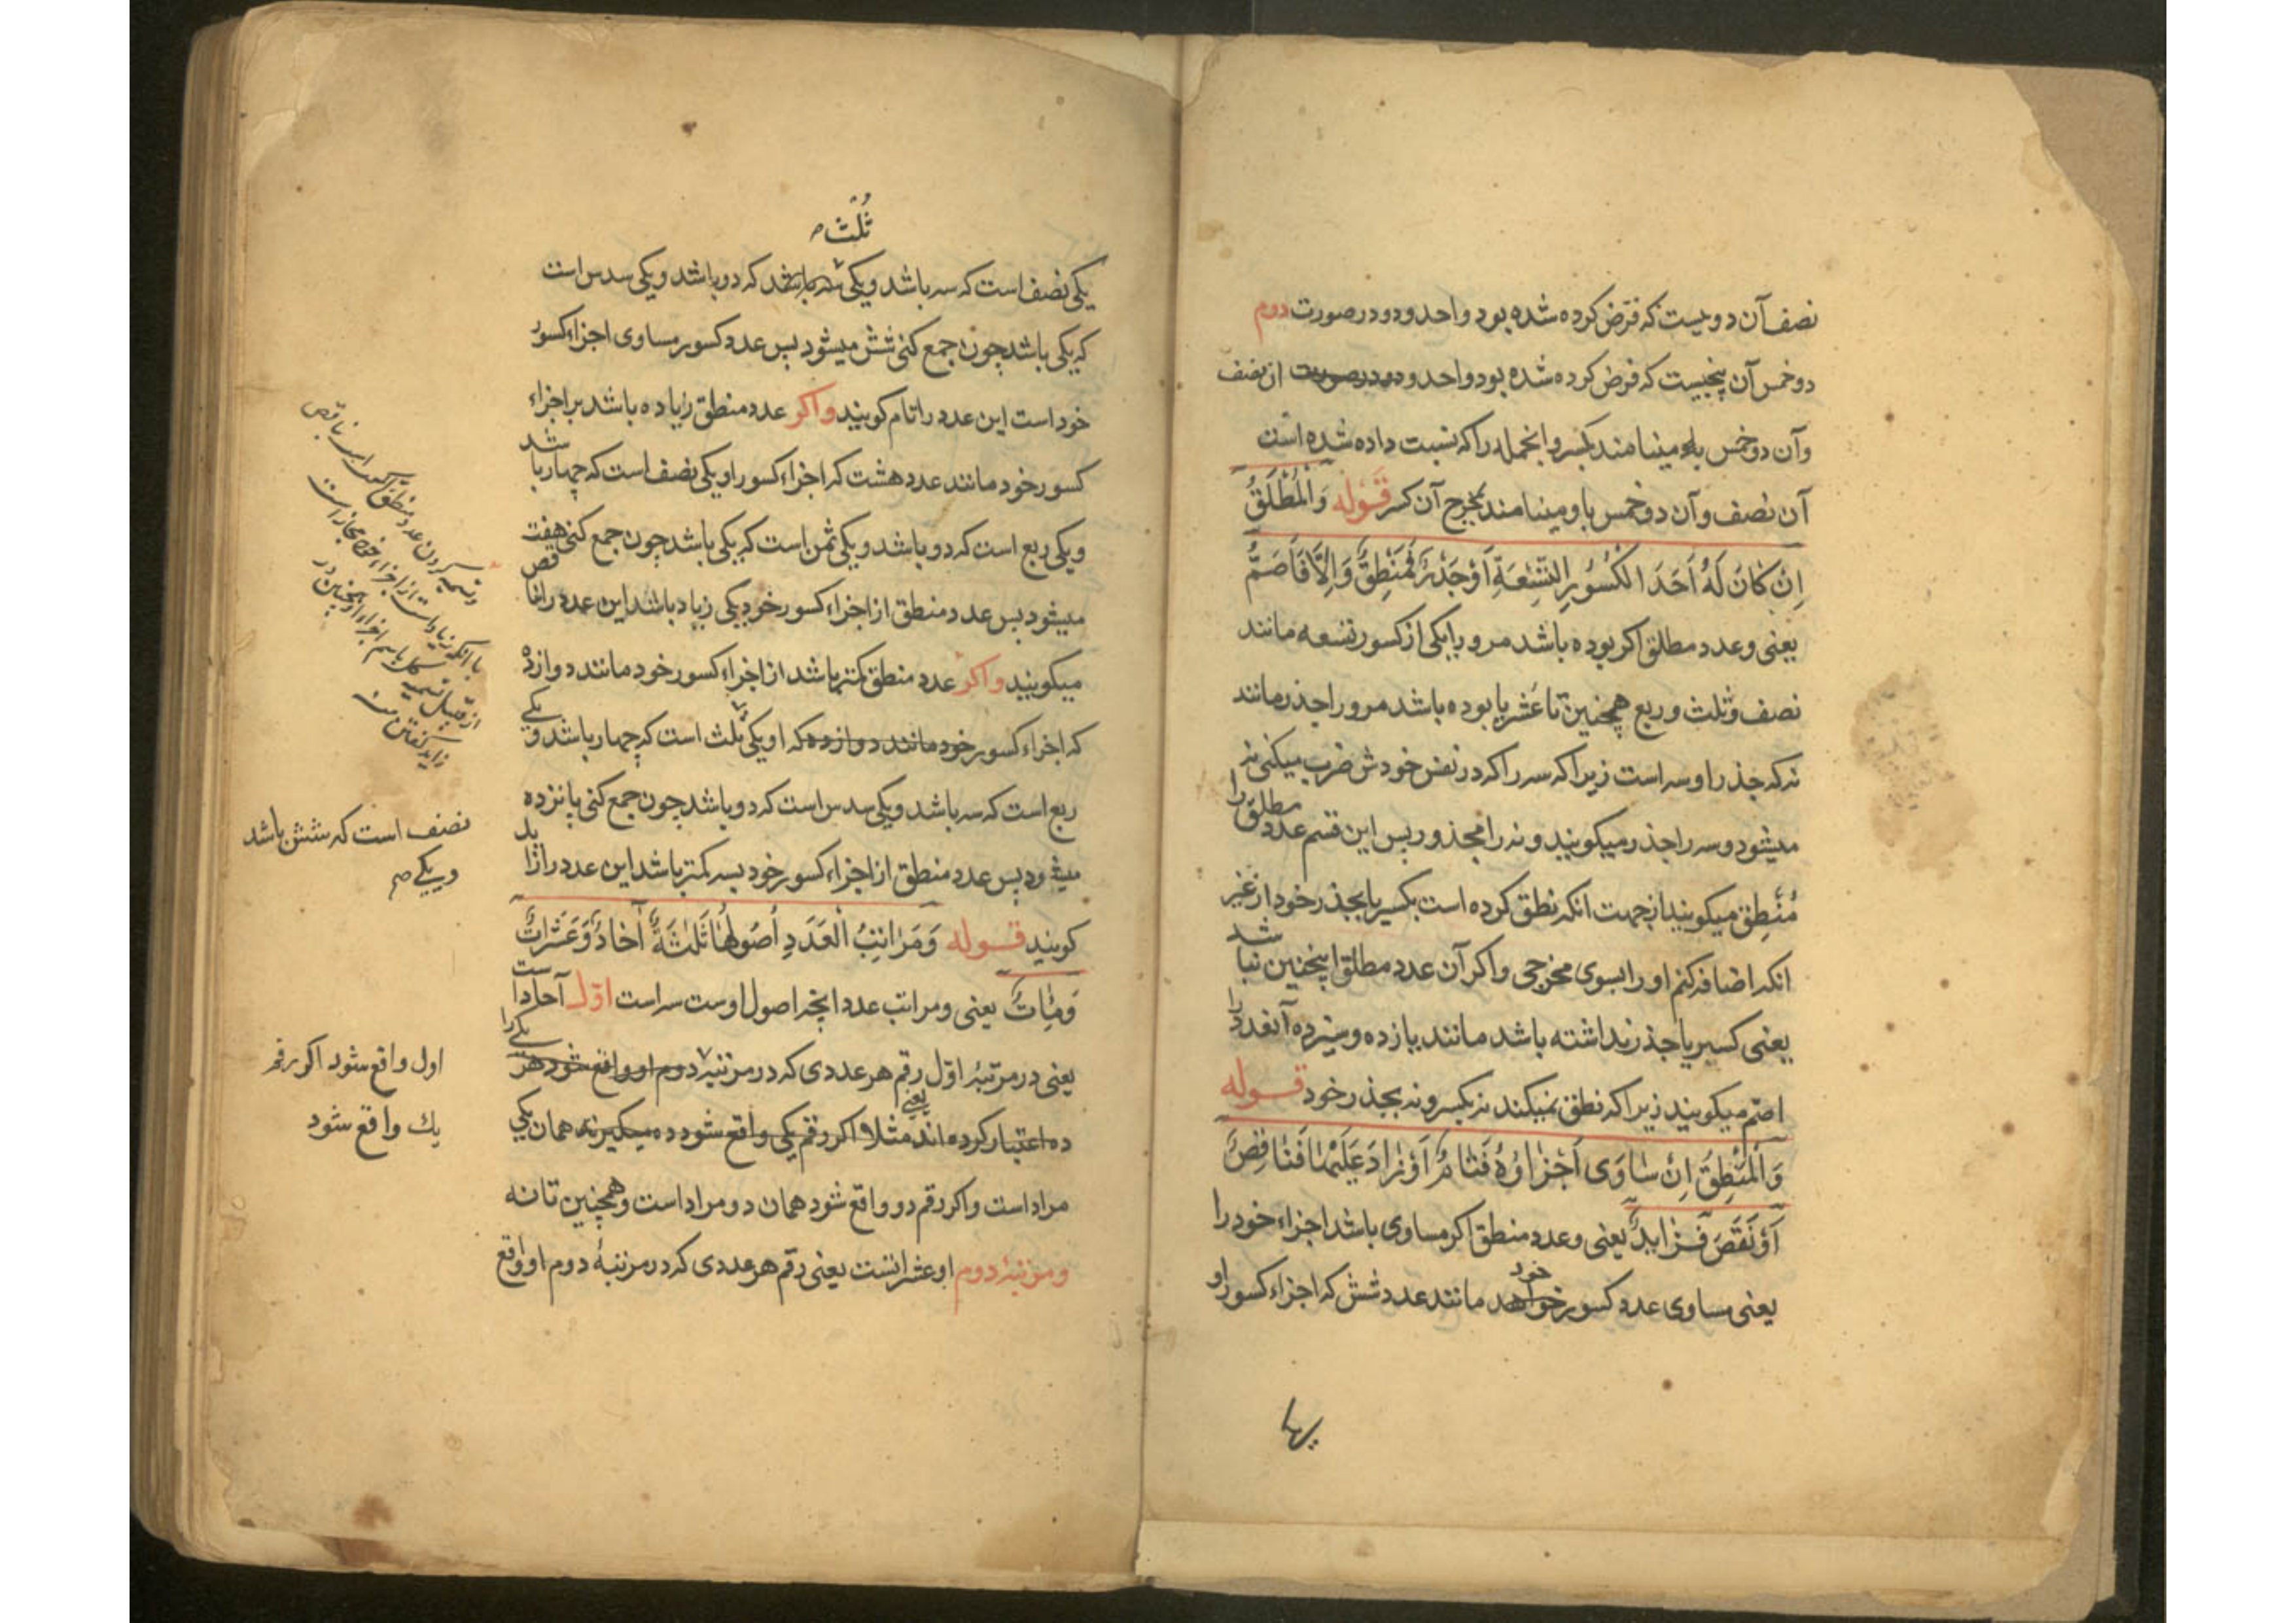 نصف آن دویست که فرض کرده شده بود واحد و دو در صورت دوم
دو خمس آن پنجیست که فرض کرده شده بود واحد و دو در صورت از نصف
وآن دو خمس یاد مینامند بکسر و انجمله را که نسبت داده شده است
آن نصف وآن دو خمس باو مینامند بمخرج آن کسر قوله وَالْمُطْلَقُ
اِنْ کٰانَ لَهُ اَحَدَ الکُسُوُرِ التِّسْعَةِ اَوْ جَذْرٌ فَمُنْطِقٌ وَاِلّٰا فَاَصَمُّ
یعنی وعدد مطلق اکر بوده باشد مرورا یکی از کسور تسعه مانند
نصف وثلث وربع همچنین تا عُشر یا بوده باشد مرورا جذر مانند
نه که جذر او سه است زیرا که سه را که در نفس خودش ضرب میکنی نه
میشود وسه را جذر میکویند و نه را مجذور پس این قسم عدد مطلق را
مُنْطِق میکویند از جهت انکه نطق کرده است بکسر یا بجذر خود از غیر
انکه اضافه کنم او را بسوی مخرجی واکر آن عدد مطلق اینچنین نباشد
یعنی کسر یا جذر نداشته باشد مانند یازده وسیزده آنعدد را
اصم میکویند زیرا که نطق نمیکند نه بکسر و نه بجذر خود قوله
وَالْمُنْطِقُ اِنْ سٰاوَی اَجْزٰاؤُهُ فَتٰامٌ اَوْ زٰادَ عَلَیْهٰا فَنٰاقِصٌ
اَوْ نَقَصَ فَزٰایِدٌ یعنی وعدد منطق اکر مساوی باشد اجزاء خود را
یعنی مساوی عدد کسور خواهد خود مانند عدد شش که اجزاء کسور او
ثُلُث
یکی نصف است که سه باشد ویکی سه باشد که دو باشد ویکی سدس است
که یکی باشد چون جمع کنی شش میشود پس عدد کسور مساوی اجزاء کسور
خود است این عدد را تام کویند واکر عدد منطق زیاده باشد بر اجزاء
کسور خود مانند عدد هشت که اجزاء کسور او یکی نصف است که چهار باشد
ویکی ربع است که دو باشد ویکی ثمن است که یکی باشد چون جمع کنی هفت
میشود پس عدد منطق از اجزاء کسور خود بیکی زیاد باشد این عدد را ناقص
میکویند واکر عدد منطق کمتر باشد از اجزاء کسور خود مانند دوازده
که اجزاء کسور خود مانند دوازده که او یکی ثلث است که چهار باشد ویکی
ربع است که سه باشد ویکی سدس است که دو باشد چون جمع کنی پانزده
میشود پس عدد منطق از اجزاء کسور خود بسه کمتر باشد این عدد را زاید
کویند قوله وَمَرٰاتِبُ الْعَدَدِ اُصُولُهٰا ثَلٰثَةٌ آحٰادٌ وَعَشَرٰاتٌ
وَمِئٰاتٌ یعنی ومراتب عدد انچه اصول اوست سه است اوّل آحاد است
یعنی در مرتبهٔ اوّل رقم هر عددی که در مرتبهٔ دوم او واقع شود هر یکی را
ده اعتبار کرده اند یعنی مثلا اکر رقم یکی واقع شود ده میکیرند همان یکی
مراد است واکر رقم دو واقع شود همان دو مراد است وهمچنین تا نه
ومرتبهٔ دوم او عشراتست یعنی رقم هر عددی که در مرتبهٔ دوم او واقع
نصف است که شش باشد
ویکی
اول واقع شود اکر رقم
یك واقع شود